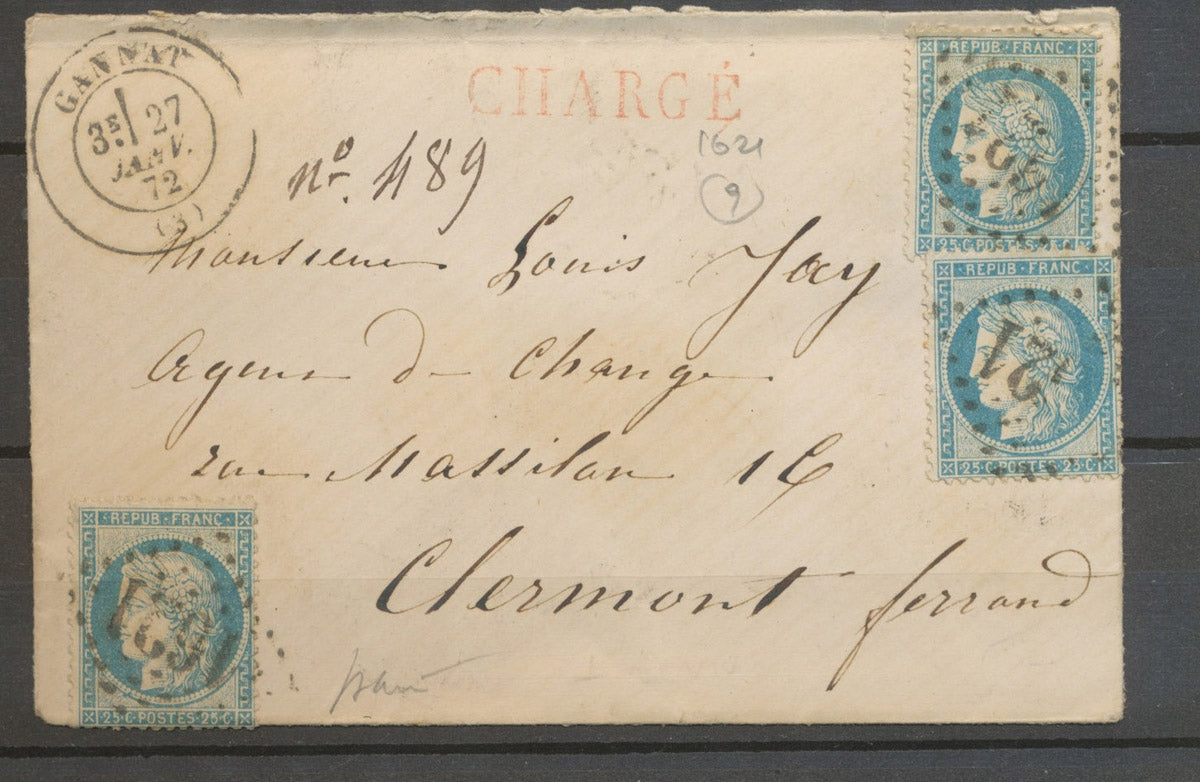 GANNAT
3E 27
JANV.
72
(3)
CHARGÉ
1621
9
no. 489
Monsieur Louis Jay
Agent de Change
rue Massillon 16
Clermont ferrand
REPUB FRANC
25 C POSTES 25 C
REPUB FRANC
25 C POSTES 25 C
21
REPUB FRANC
25 C POSTES 25 C